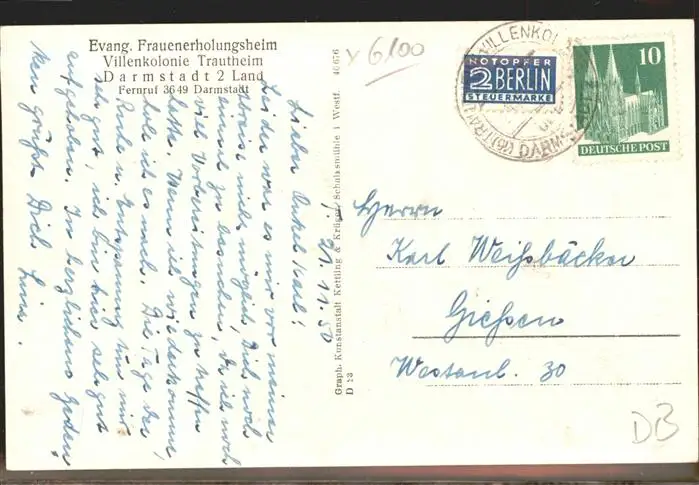 Evang. Frauenerholungsheim
Villenkolonie Trautheim
Darmstadt 2 Land
Fernruf 3649 Darmstadt
x 6,00
NOTOPFER
2 BERLIN
STEUERMARKE
10
DEUTSCHE POST
VILLENKOL
DARM
21.11.50
Lieber Onkel Karl!
Leider war es mir vor meiner
Abreise nicht möglich, Dich noch
einmal zu besuchen, da ich noch
viel Vorbereitungen zu treffen
hatte. Wenn ich wiederkomme,
hole ich es nach. Die Tage der
Ruhe u. Entspannung tun mir
sehr gut, ich bin hier sehr gut
aufgehoben. In herzlichem Geden-
ken grüßt Dich
Graph. Kunstanstalt Kettling & Krüger, Schalksmühle i. Westf. 40676
D 13
Herrn
Karl Weißbäcker
Gießen
Westanl. 30
DB